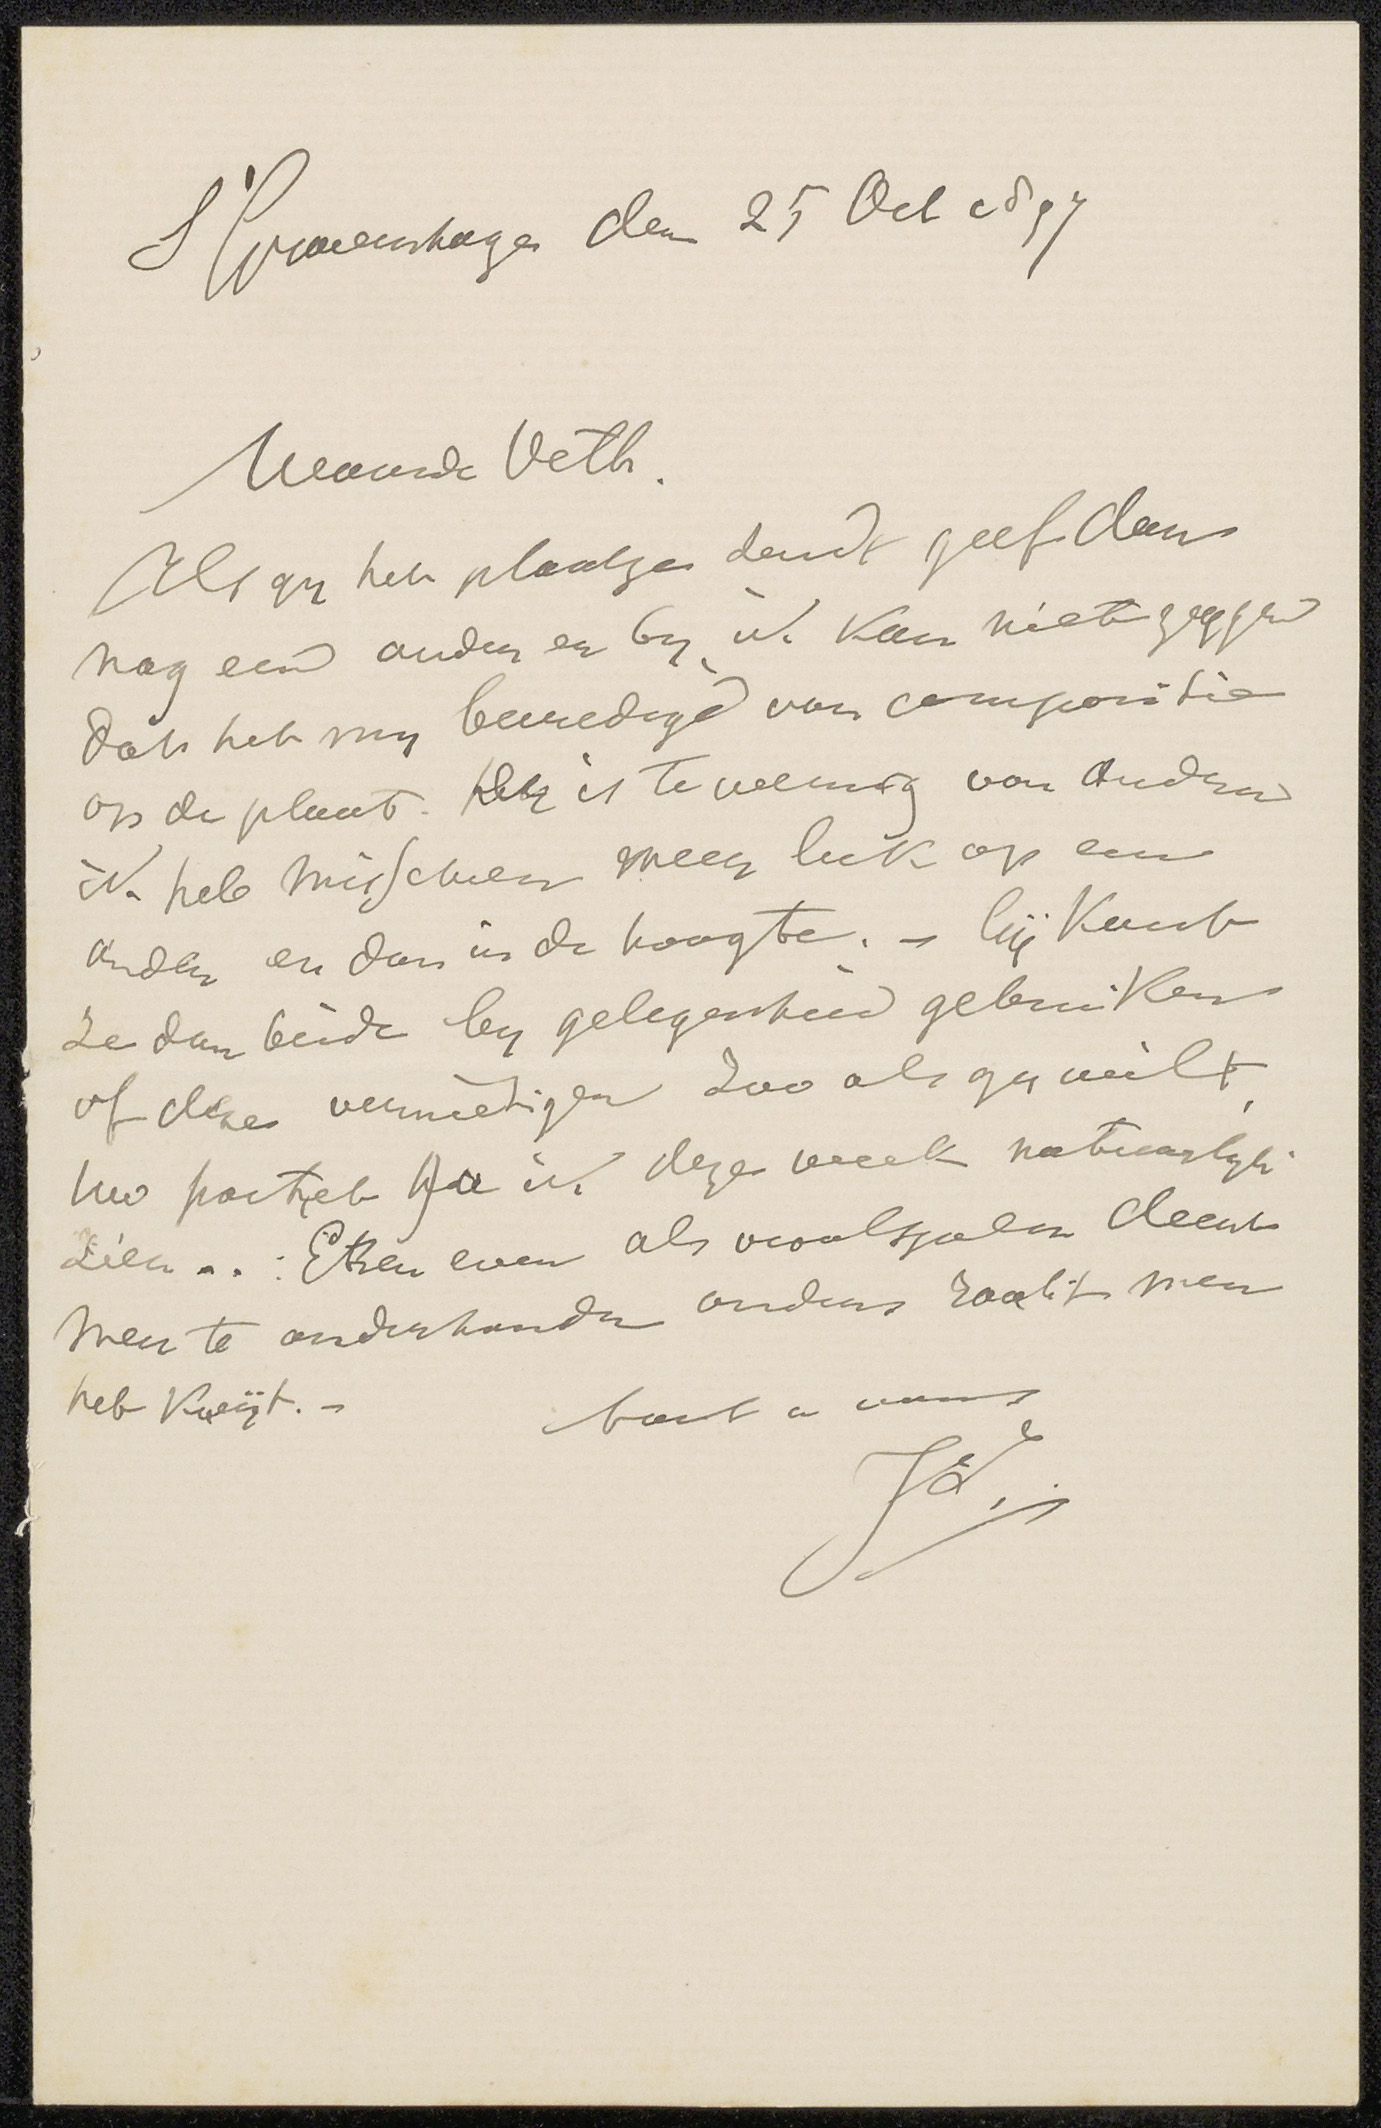 S'Gravenhage den 25 Oct 1897
Waarde Veth.
Als gy het plaatje zendt geef dan
nog een ander er by, ik kan niet zeggen
dat het my bevredigd van compositie
op de plaat. Het is te weinig van onderen
ik heb misschien meer luk op een
ander en dan in de hoogte. – Gij kunt
ze dan beide by gelegenheid gebruiken
of deze vernietigen zoo als gy wilt,
uw portret ga ik deze week natuurlyk
zien ... Etsen even als vioolspelen dient
men te onderhouden anders raakt men
het kwijt. –